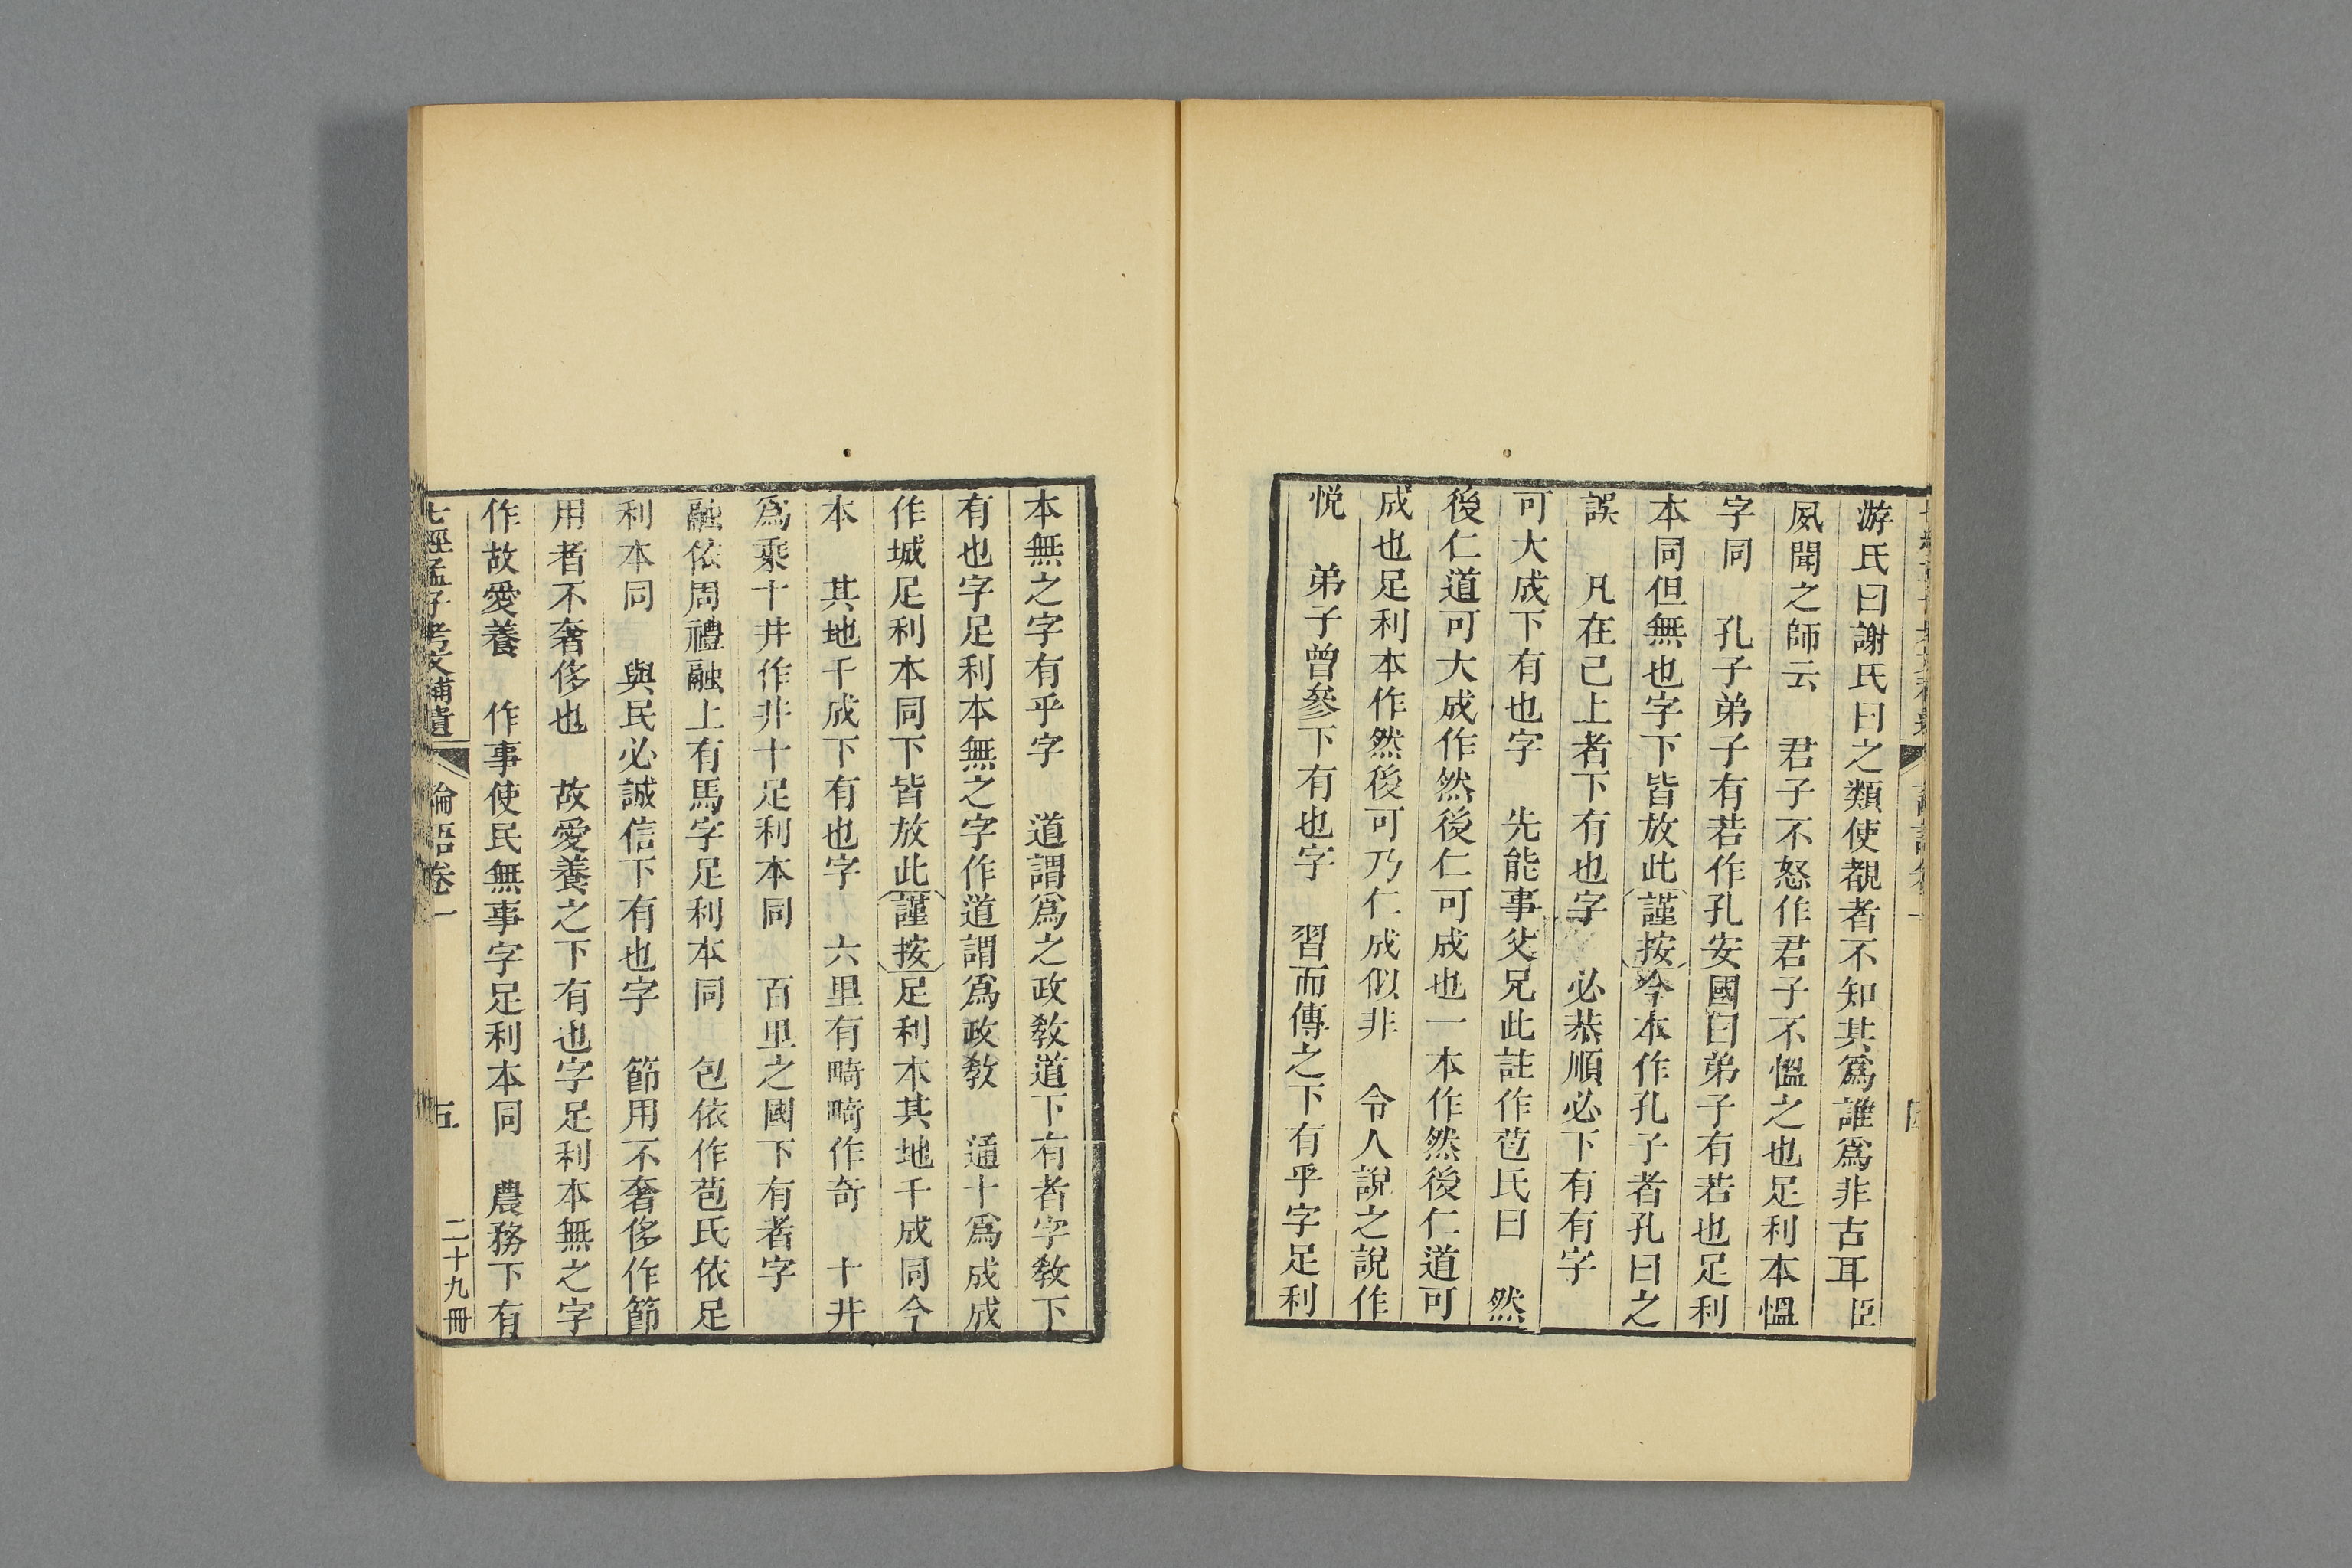 游氏曰謝氏曰之類使覩者不知其爲誰爲非古耳臣
夙聞之師云　君子不怒作君子不慍之也足利本慍
字同　孔子弟子有若作孔安國曰弟子有若也足利
本同但無也字下皆放此謹按今本作孔子者孔曰之
誤　凡在己上者下有也字　必恭順必下有有字
可大成下有也字　先能事父兄此註作苞氏曰　然
後仁道可大成作然後仁可成也一本作然後仁道可
成也足利本作然後可乃仁成似非　令人說之說作
悅　弟子曾參下有也字　習而傳之下有乎字足利
本無之字有乎字　道謂爲之政敎道下有者字敎下
有也字足利本無之字作道謂爲政敎　通十爲成成
作城足利本同下皆放此謹按足利本其地千成同今
本　其地千成下有也字　六里有畸畸作奇　十井
爲乘十井作非十足利本同　百里之國下有者字
融依周禮融上有馬字足利本同　包依作苞氏依足
利本同　與民必誠信下有也字　節用不奢侈作節
用者不奢侈也　故愛養之下有也字足利本無之字
作故愛養　作事使民無事字足利本同　農務下有
七經孟子考文補遺　論語卷一　五　二十九冊